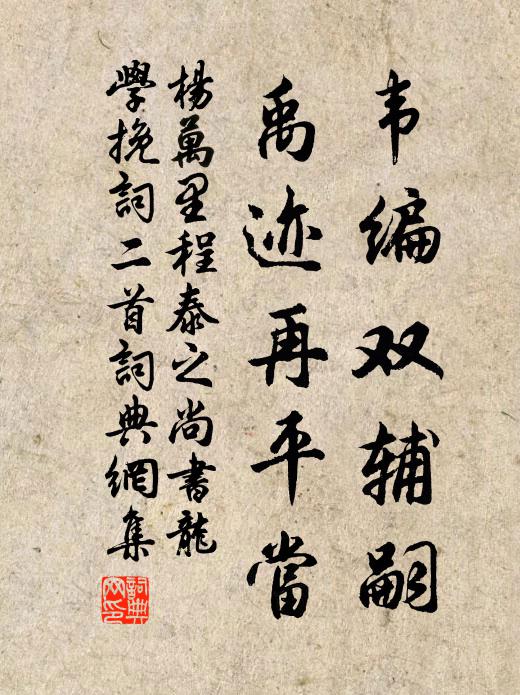 韦编双辅嗣
禹迹再平當
楊萬里程泰之尚書龍
學挽詞二首詞典網集
詞典網印